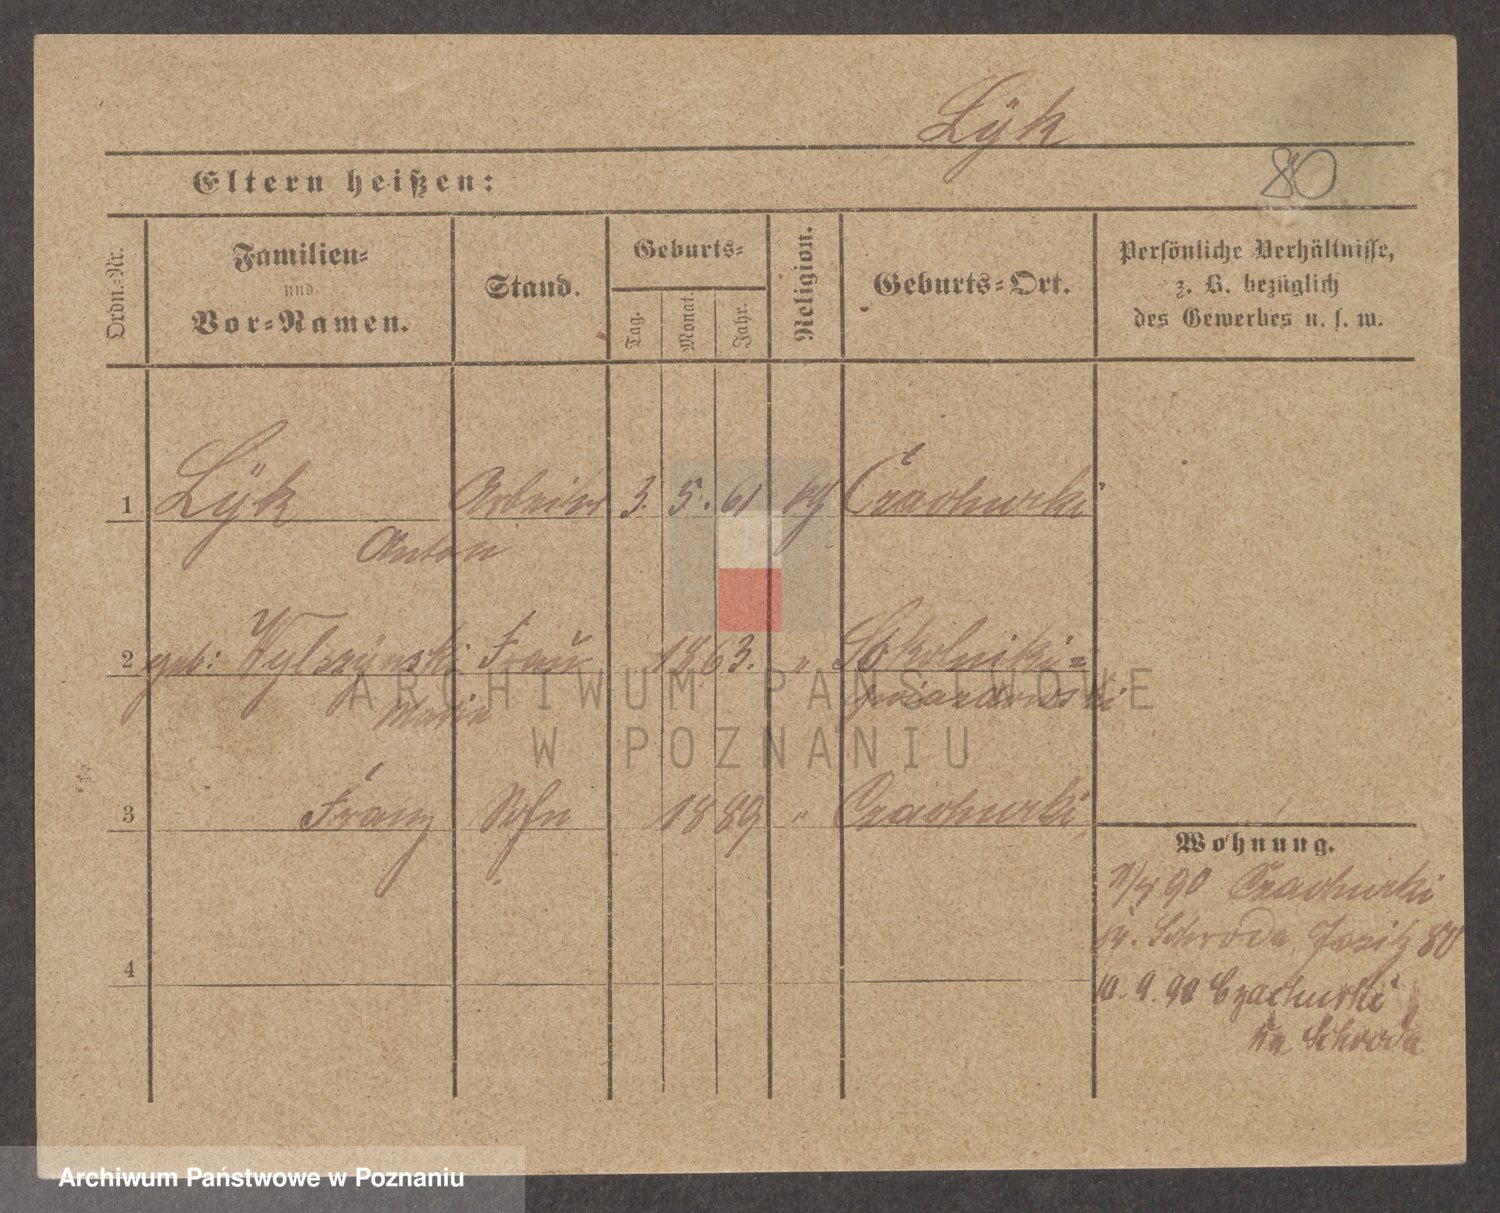 Lÿk
80
Eltern heißen:
Ordn.-Nr.
Familien- und Vor-Namen.
Stand.
Geburts-
Tag.
Monat.
Jahr.
Religion.
Geburts-Ort.
Persönliche Verhältnisse,
z. B. bezüglich
des Gewerbes u. s. w.
1 Lÿk Arbeiter 3. 5. 61 kg Czachurki
Anton
2 geb: Frau 1863. " Sokolniki=
Maria gwiazdowski
3 Franz Sohn 1889 " Czachurki
4
Wohnung.
90 Czachurki
Kr. Schroda, 80
10. 9. 90 Czachurki
Kr. Schroda
ARCHIWUM PAŃSTWOWE
W POZNANIU
Archiwum Państwowe w Poznaniu